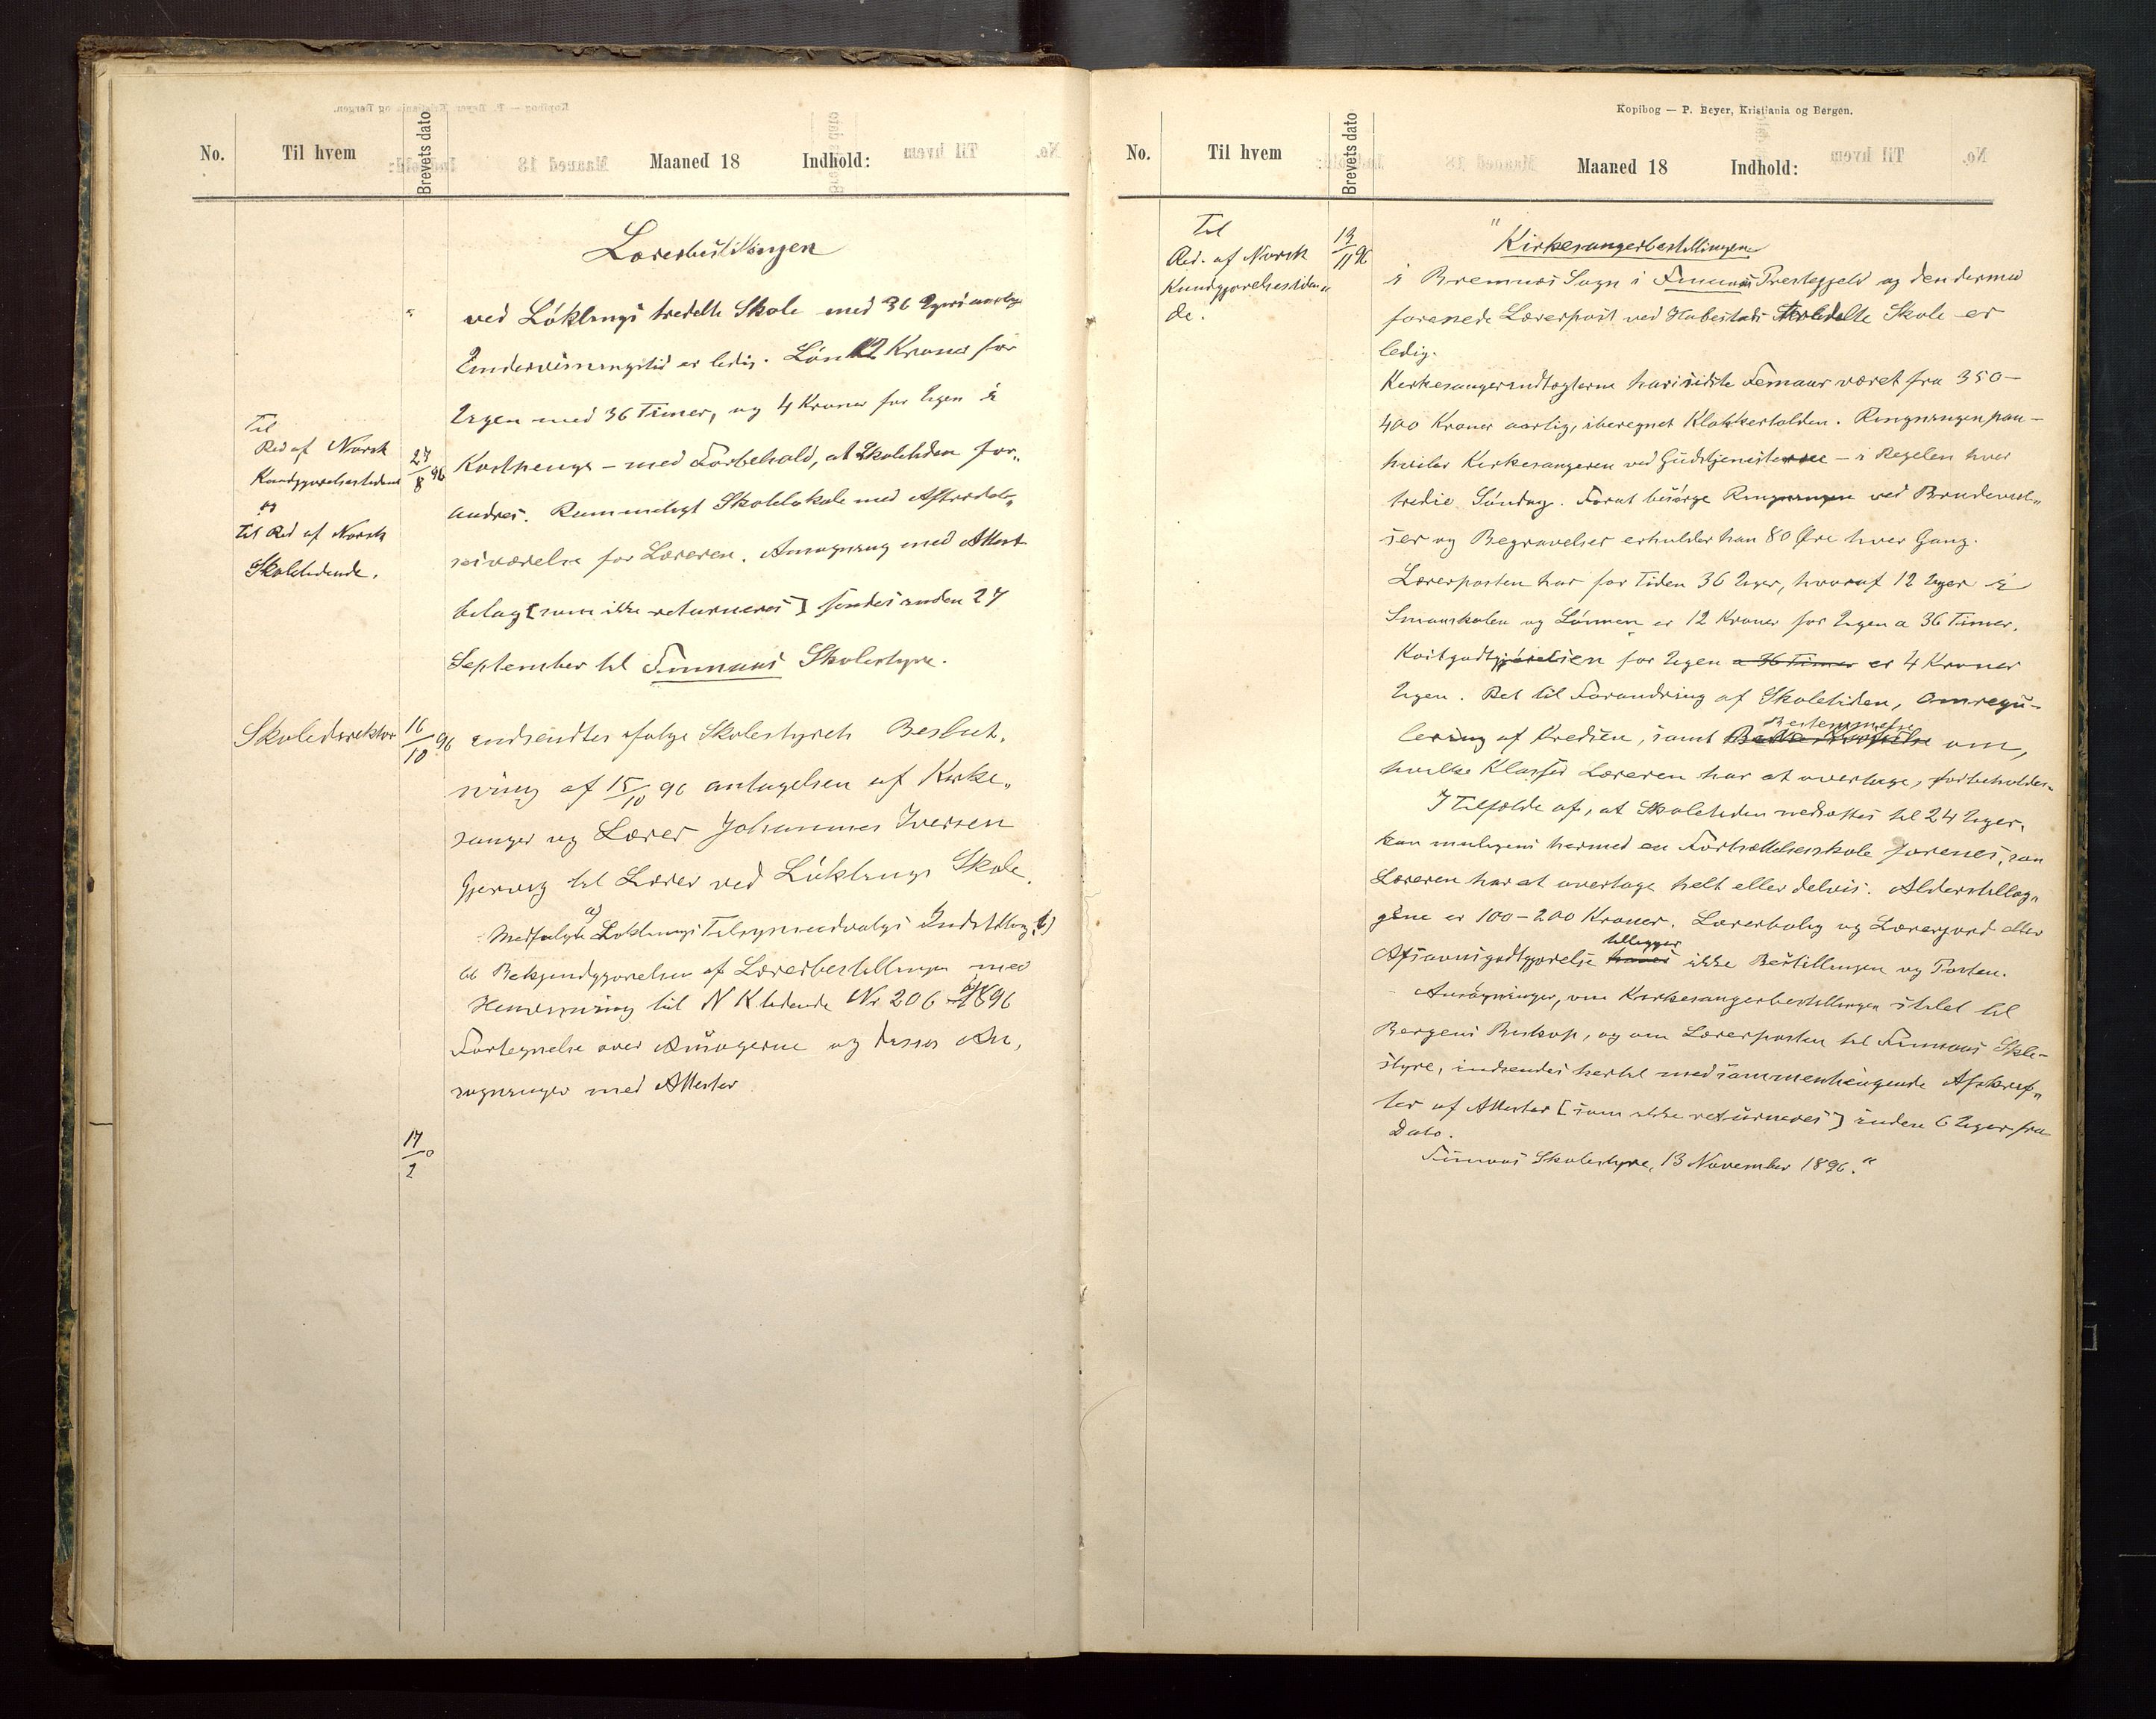 No.
Til hvem
Brevets dato
Maaned 18
Indhold:
Lærerbestillingen
ved Løklings tredelte Skole med 36 Ugers
Undervisningstid er ledig. Løn 12 Kroner for
Ugen med 36 Timer, og 4 Kroner for Ugen i
Til
Red af Norsk
Kundgjørelsestidende
og
Til Red af Norsk
Skoletidende.
27/8 96
Kostpenge – med Forbehold, at Skoletiden for„
andres. Rummeligt Skolelokale med Aftrædel„
sesværelse for Læreren. Ansøgning med Attest
belag [som ikke returneres] sendes inden 27
September til Finnaas Skolestyre.
Skoledirektør
16/10 96
indsendtes ifølge Skolestyrets Beslut„
ning af 15/10 96 antagelsen af Kirke„
sanger og Lærer Johannes Iversen
Gjervig til Lærer ved Løklings Skole.
Medfulgte a) Løklings Tilsynsudvalgs Indstilling, b)
Bekjendtgjørelsen af Lærerbestillingen med
Henvisning til N K tidende Nr 206 1896
Fortegnelse over Ansøgerne og disses An„
søgninger med Attester
17/2
Kopibog — P. Beyer, Kristiania og Bergen.
No.
Til hvem
Brevets dato
Maaned 18
Indhold:
Til
Red. af Norsk
Kundgjørelsestiden„
de.
13/11 96
"Kirkesangerbestillingen
i Bremnæs Sogn i Finnaas Prestegjeld og den dermed
forenede Lærerpost ved Hubestads Skole er
ledig.
Kirkesangerindtægterne har i sidste Femaar været fra 350–
400 Kroner aarlig, iberegnet Klokkertolden. Ringningen paa–
hviler Kirkesangeren ved Gudstjenesterne – i Regelen hver
tredie Søndag. For at besørge Ringningen ved Brudeviel„
ser og Begravelser erholder han 80 Øre hver Gang.
Lærerposten har for Tiden 36 Uger, hvoraf 12 Uger i
Smaaskolen og Lønnen er 12 Kroner for Ugen a 36 Timer.
Kostgodtgjørelsen for Ugen a 36 Timer er 4 Kroner
Ugen. Ret til Forandring af Skoletiden, Omregu–
lering af Kredsene, samt Bestemmelse om,
hvilke Klasser Læreren har at overtage, forbeholdes.
I Tilfælde af, at Skoletiden nedsættes til 24 Uger,
kan muligens hermed en Fortsættelsesskole forenes, som
Læreren har at overtage helt eller delvis. Alderstillæg„
gene er 100–200 Kroner. Lærerbolig og Lærerjord eller
Afsavnsgodtgjørelse tillegger ikke Bestillingen og Posten.
Ansøgninger, om Kirkesangerbestillingen stilet til
Bergens Biskop, og om Lærerposten til Finnaas Skole–
styre, indsendes hertil med sammenhængende Afskrif„
ter af Attester [som ikke returneres] inden 6 Uger fra
Dato.
Finnaas Skolestyre, 13 November 1896."